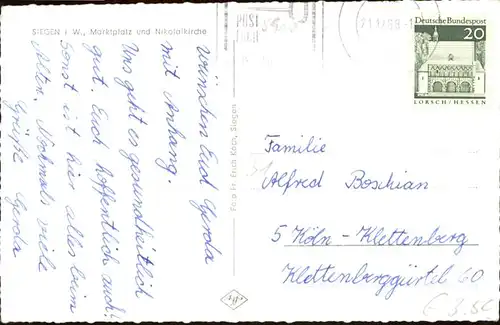 SIEGEN i. W., Marktplatz und Nikolaikirche
wünschen Euch Gerda
mit Anhang.
Uns geht es gesundheitlich
gut. Euch hoffentlich auch.
Sonst ist hier alles beim
Alten. Nochmals viele
Grüße Gerda
Erich Koch, Siegen
POST
Deutsche Bundespost
20
LORSCH/HESSEN
Familie
Alfred Boschian
5 Köln-Klettenberg
Klettenberggürtel 60